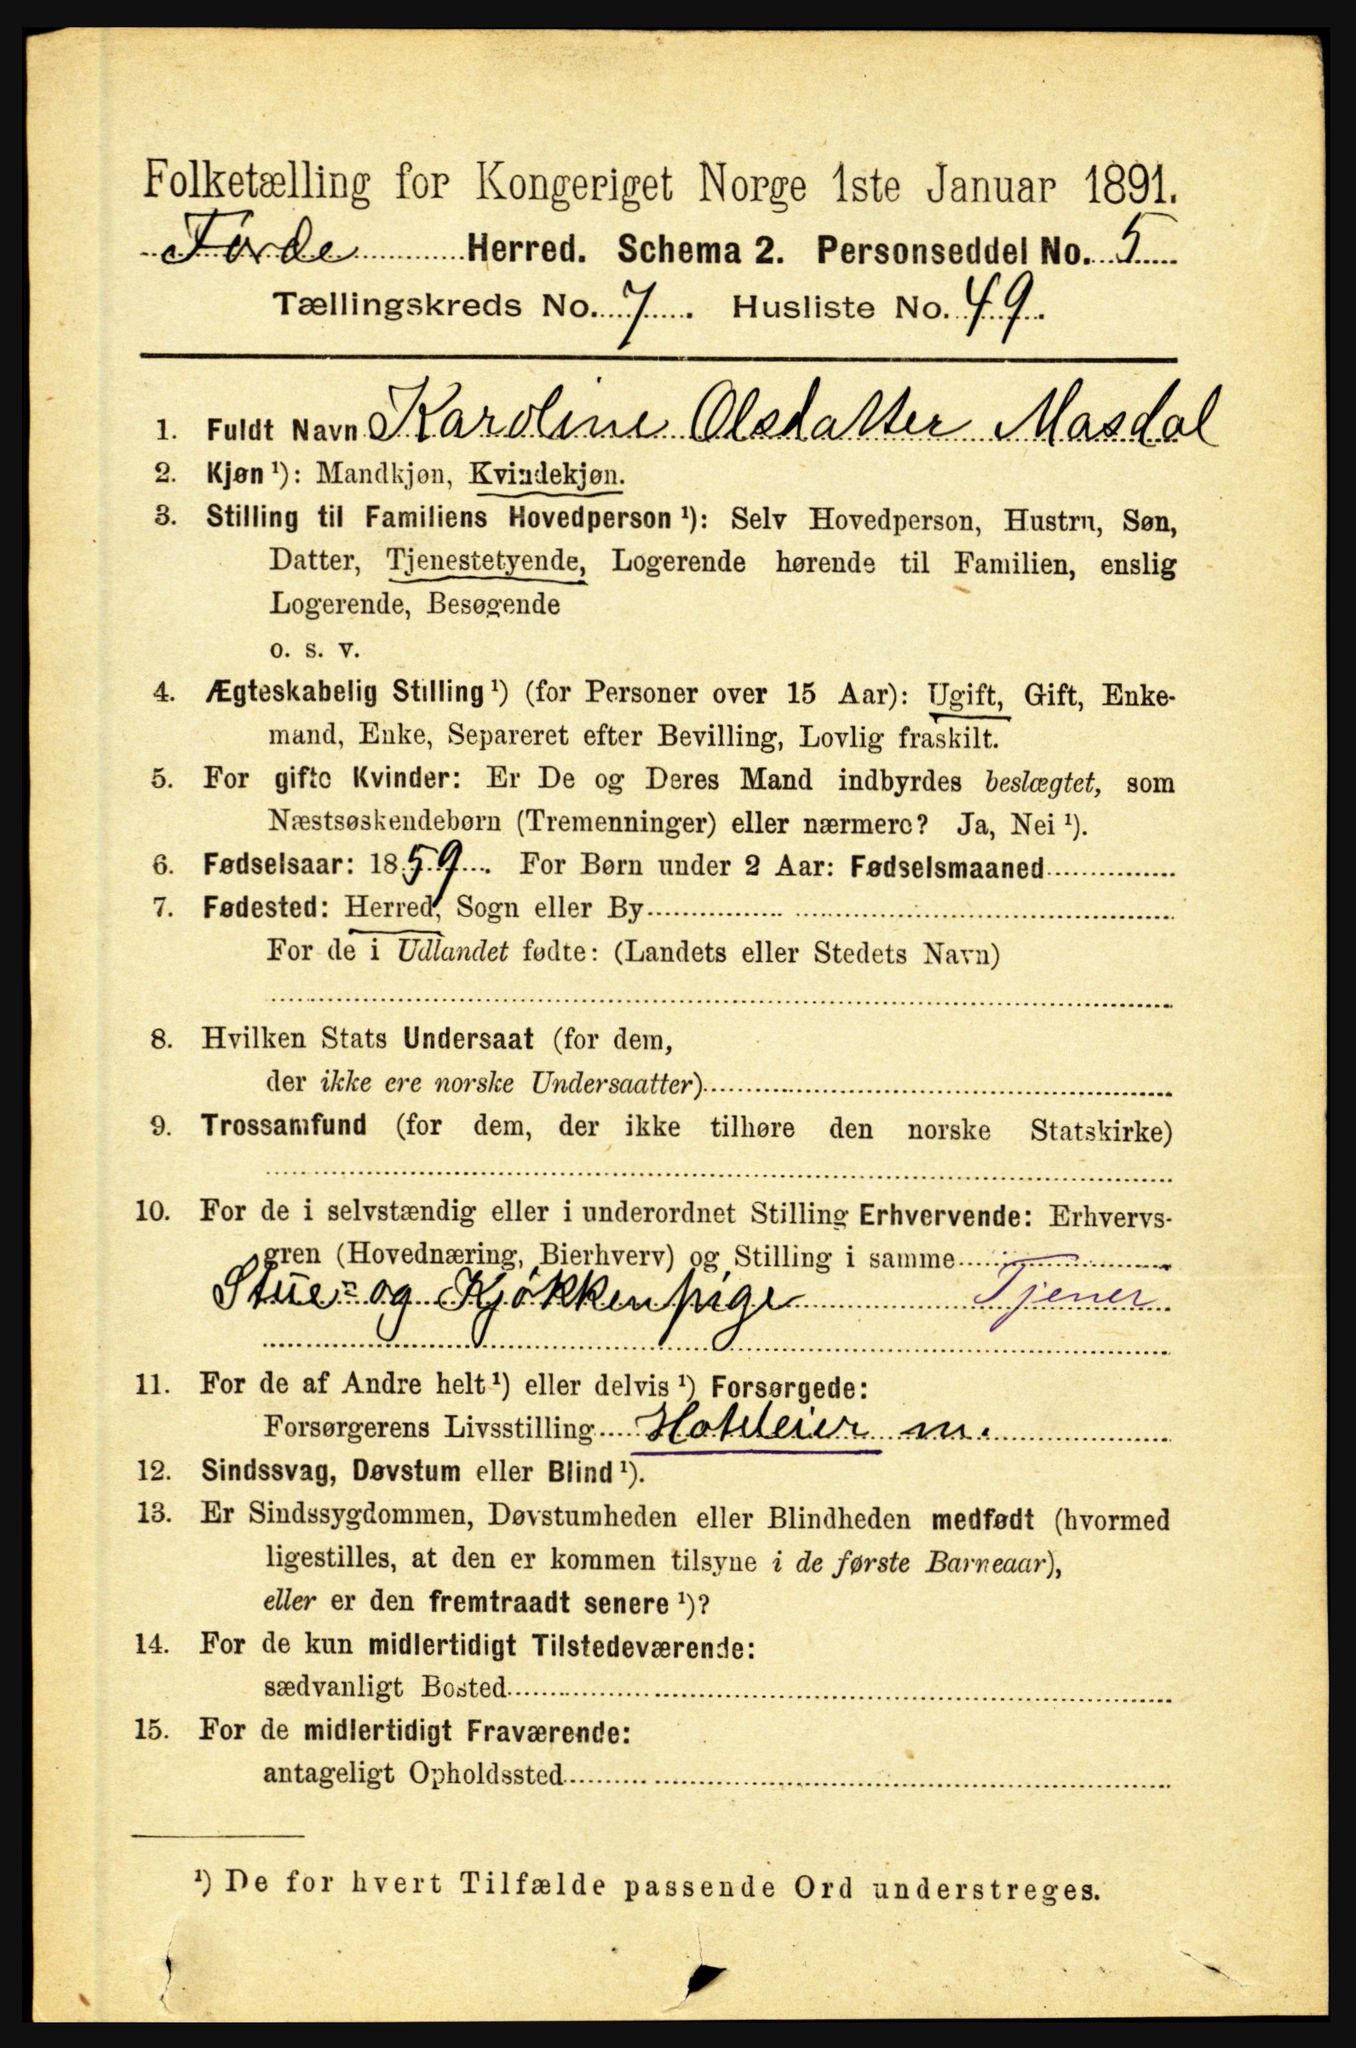 Folketælling for Kongeriget Norge 1ste Januar 1891.
Førde Herred. Schema 2. Personseddel No. 5
Tællingskreds No. 7. Husliste No. 49.
1. Fuldt Navn Karoline Olsdatter Masdal
2. Kjøn ¹): Mandkjøn, Kvindekjøn.
3. Stilling til Familiens Hovedperson ¹): Selv Hovedperson, Hustru, Søn,
Datter, Tjenestetyende, Logerende hørende til Familien, enslig
Logerende, Besøgende
o. s. v.
4. Ægteskabelig Stilling ¹) (for Personer over 15 Aar): Ugift, Gift, Enke-
mand, Enke, Separeret efter Bevilling, Lovlig fraskilt.
5. For gifte Kvinder: Er De og Deres Mand indbyrdes beslægtet, som
Næstsøskendebørn (Tremenninger) eller nærmere? Ja, Nei ¹).
6. Fødselsaar: 1859. For Børn under 2 Aar: Fødselsmaaned
7. Fødested: Herred, Sogn eller By
For de i Udlandet fødte: (Landets eller Stedets Navn)
8. Hvilken Stats Undersaat (for dem,
der ikke ere norske Undersaatter)
9. Trossamfund (for dem, der ikke tilhøre den norske Statskirke)
10. For de i selvstændig eller i underordnet Stilling Erhvervende: Erhvervs-
gren (Hovednæring, Bierhverv) og Stilling i samme
Stue- og Kjøkkenpige Tjener
11. For de af Andre helt ¹) eller delvis ¹) Forsørgede:
Forsørgerens Livsstilling Hoteleier m.
12. Sindssvag, Døvstum eller Blind ¹).
13. Er Sindssygdommen, Døvstumheden eller Blindheden medfødt (hvormed
ligestilles, at den er kommen tilsyne i de første Barneaar),
eller er den fremtraadt senere ¹)?
14. For de kun midlertidigt Tilstedeværende:
sædvanligt Bosted
15. For de midlertidigt Fraværende:
antageligt Opholdssted
¹) De for hvert Tilfælde passende Ord understreges.